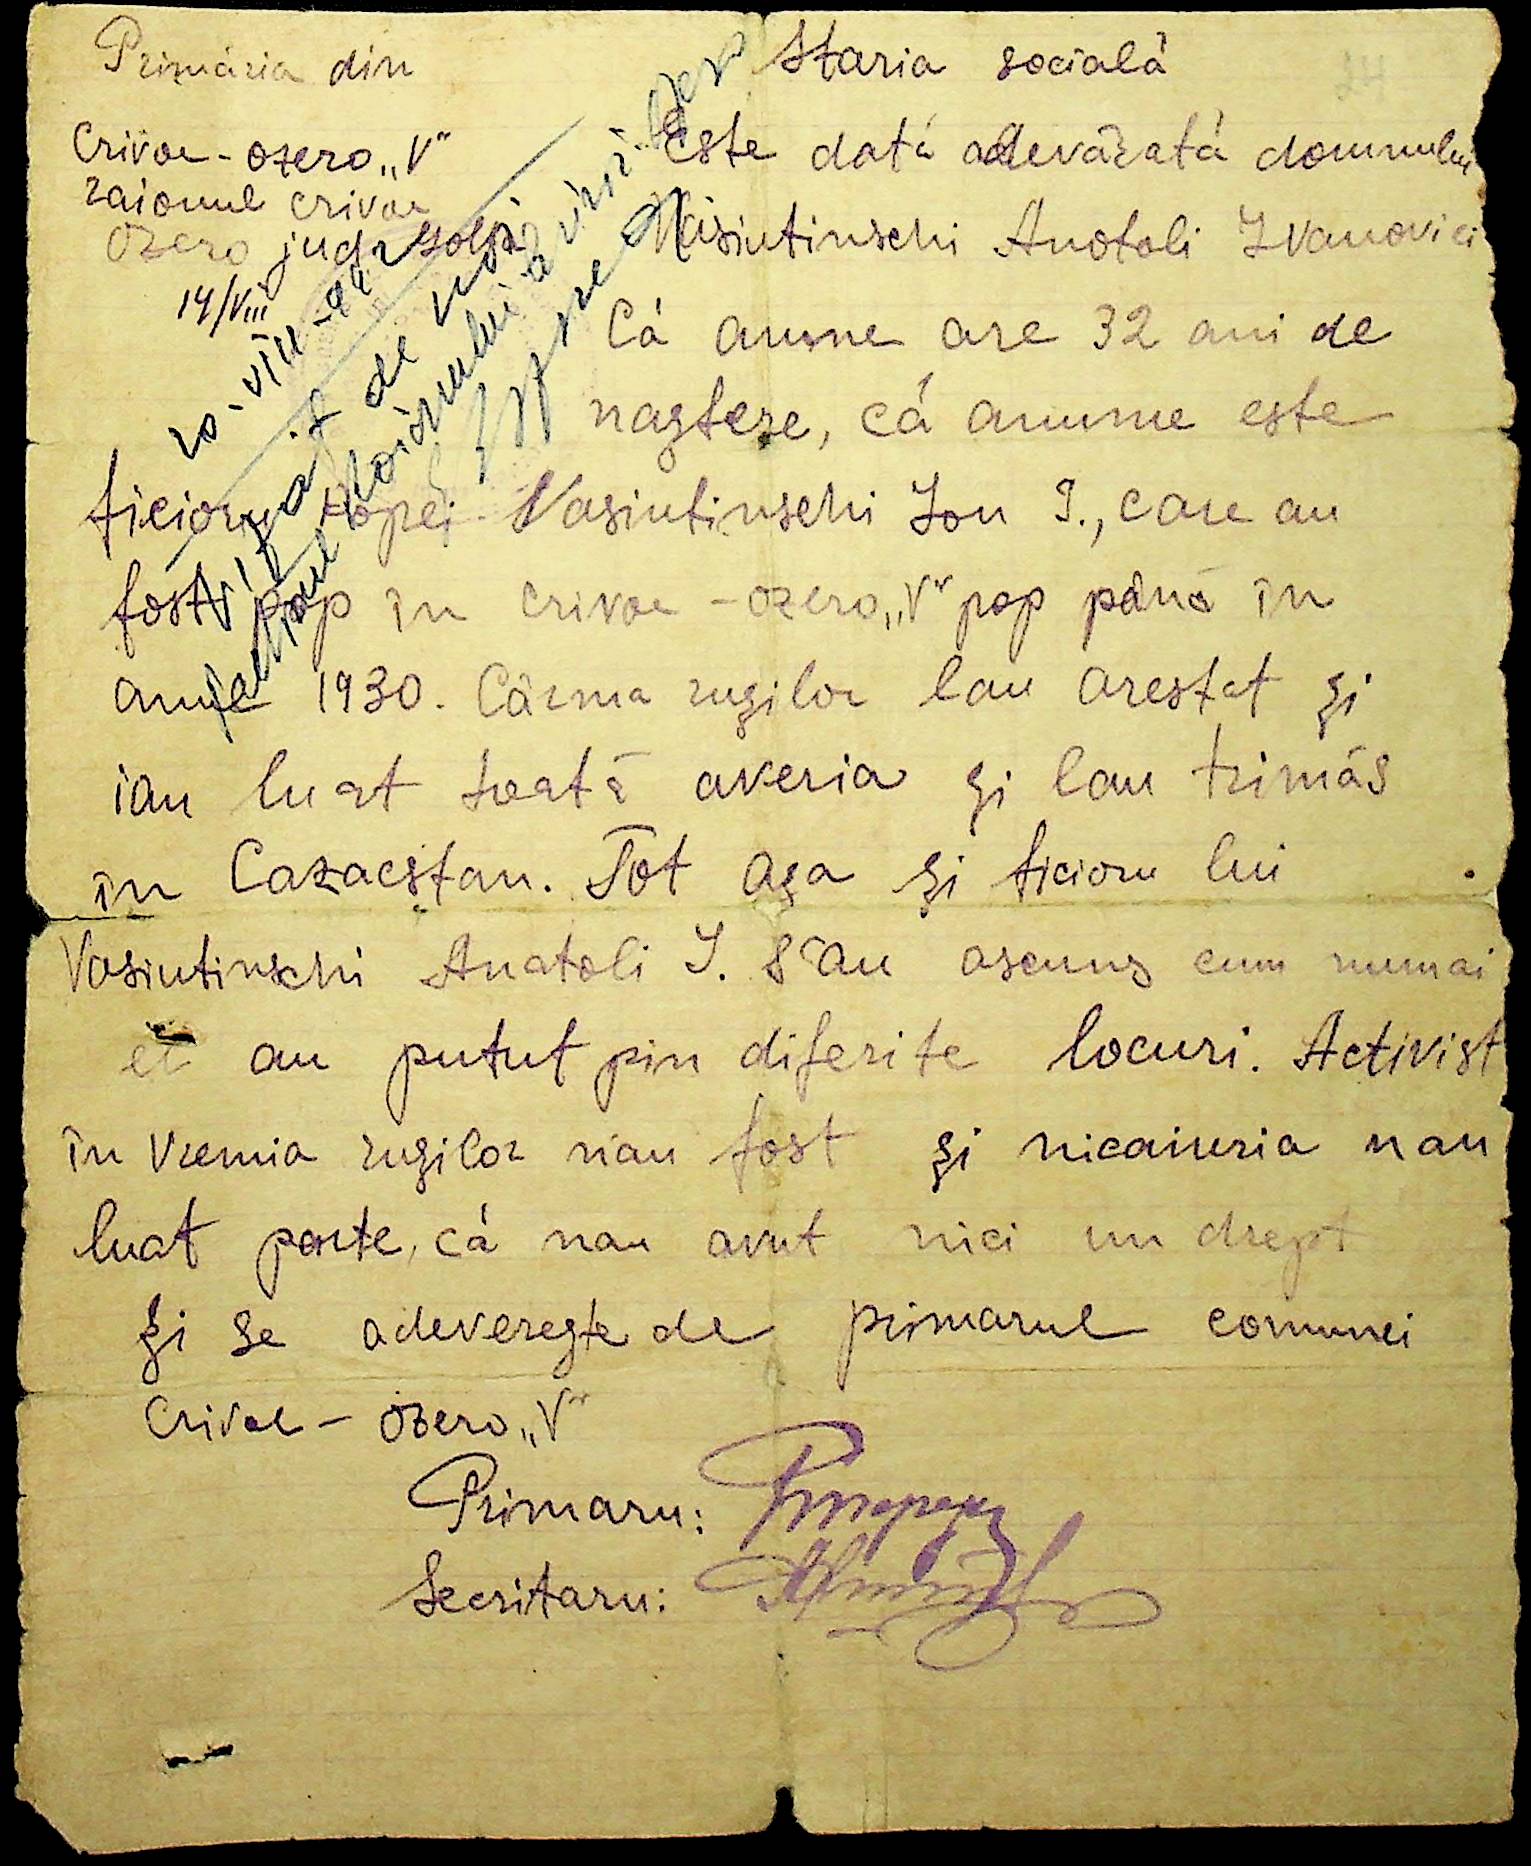 Primăria din
Crivoe-ozero „V"
raionul crivoe
ozero jud. Golta
14/VIII
Staria socială
Este dată adevărată domnului
Vasiutinschi Anatoli Ivanovici
Că anume are 32 ani de
naștere, că anume este
ficioru popei Vasiutinschi Ion I., care au
fost pop în crivoe-ozero „V" pop până în
anul 1930. Cârma rușilor lau arestat și
iau luat toată averia și lau trimăs
în Cazacstan. Tot așa și ficioru lui
Vasiutinschi Anatoli I. s'au ascuns cum numai
el au putut pin diferite locuri. Activist
în vremia rușilor n'au fost și nicaiuria nau
luat parte, că nau avut nici un drept
și se adeverește de primarul comunei
Crivoe - Ozero „V"
Primaru:
Secritaru:
de noi